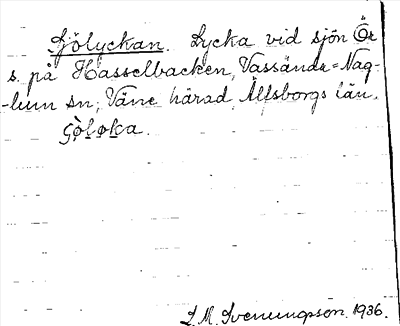 Sjölyckan. Lycka vid sjön Ör
s. på Hasselbacken, Vassända-Nag-
-lum sn, Väne härad, Älfsborgs län.
L. M. Svenungsson. 1936.